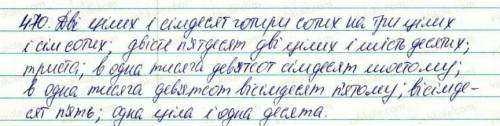 470. Дві цілих і сімдесят чотири сотих на три цілих
і сім сотих; двісті п'ятдесят дві цілих і шість десятих;
триста; в одна тисяча дев'ятсот сімдесят шостому;
в одна тисяча дев'ятсот вісімдесят п'ятому; вісімде-
сят п'ять; одна ціла і одна десята.